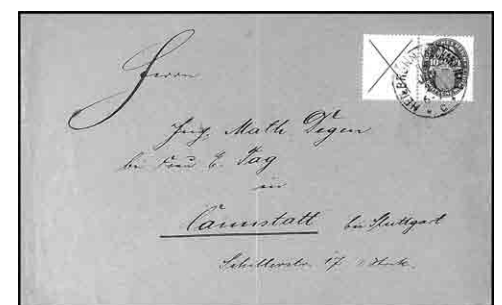 Herrn
Ing. Math Degen
bei Frau E. Tag
in
Cannstatt bei Stuttgart
Schillerstr. 17 Stock.
HEILBRONN
10
C